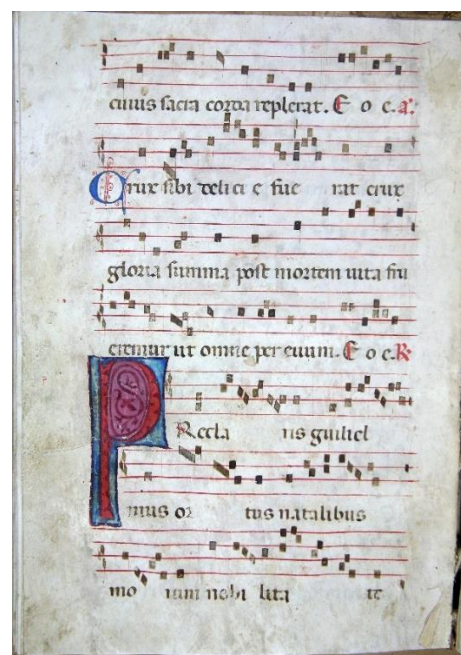 cuius sacra corda replerat. E o e. a.
Crux sibi delici e fue rat crux
gloria summa post mortem vita fru
eremur ut omne per euum. E o e. R
PRecla rus guiliel
mus or tus natalibus
mo rum nobi lita te